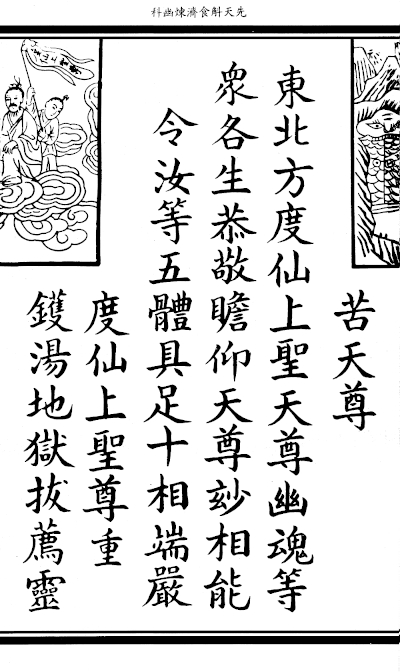 先天斛食濟煉幽科
苦天尊
東北方度仙上聖天尊幽魂等
衆各生恭敬瞻仰天尊玅相能
令汝等五體具足十相端嚴
度仙上聖尊重
鑊湯地獄拔薦靈